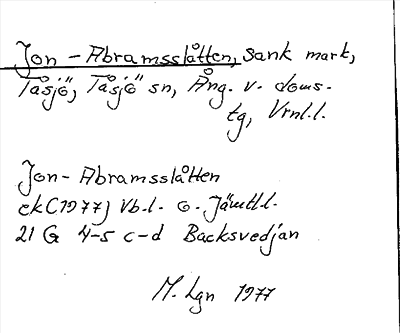 Jon-Abramsslåtten, sank mark,
Tåsjö, Tåsjö sn, Ång. v. doms-
tg, Vrnl.l.
Jon-Abramsslåtten
ek(1977) Vb.l. o. Jämtl.l.
21 G 4-5 c-d Backsvedjan
M. Lgn 1977